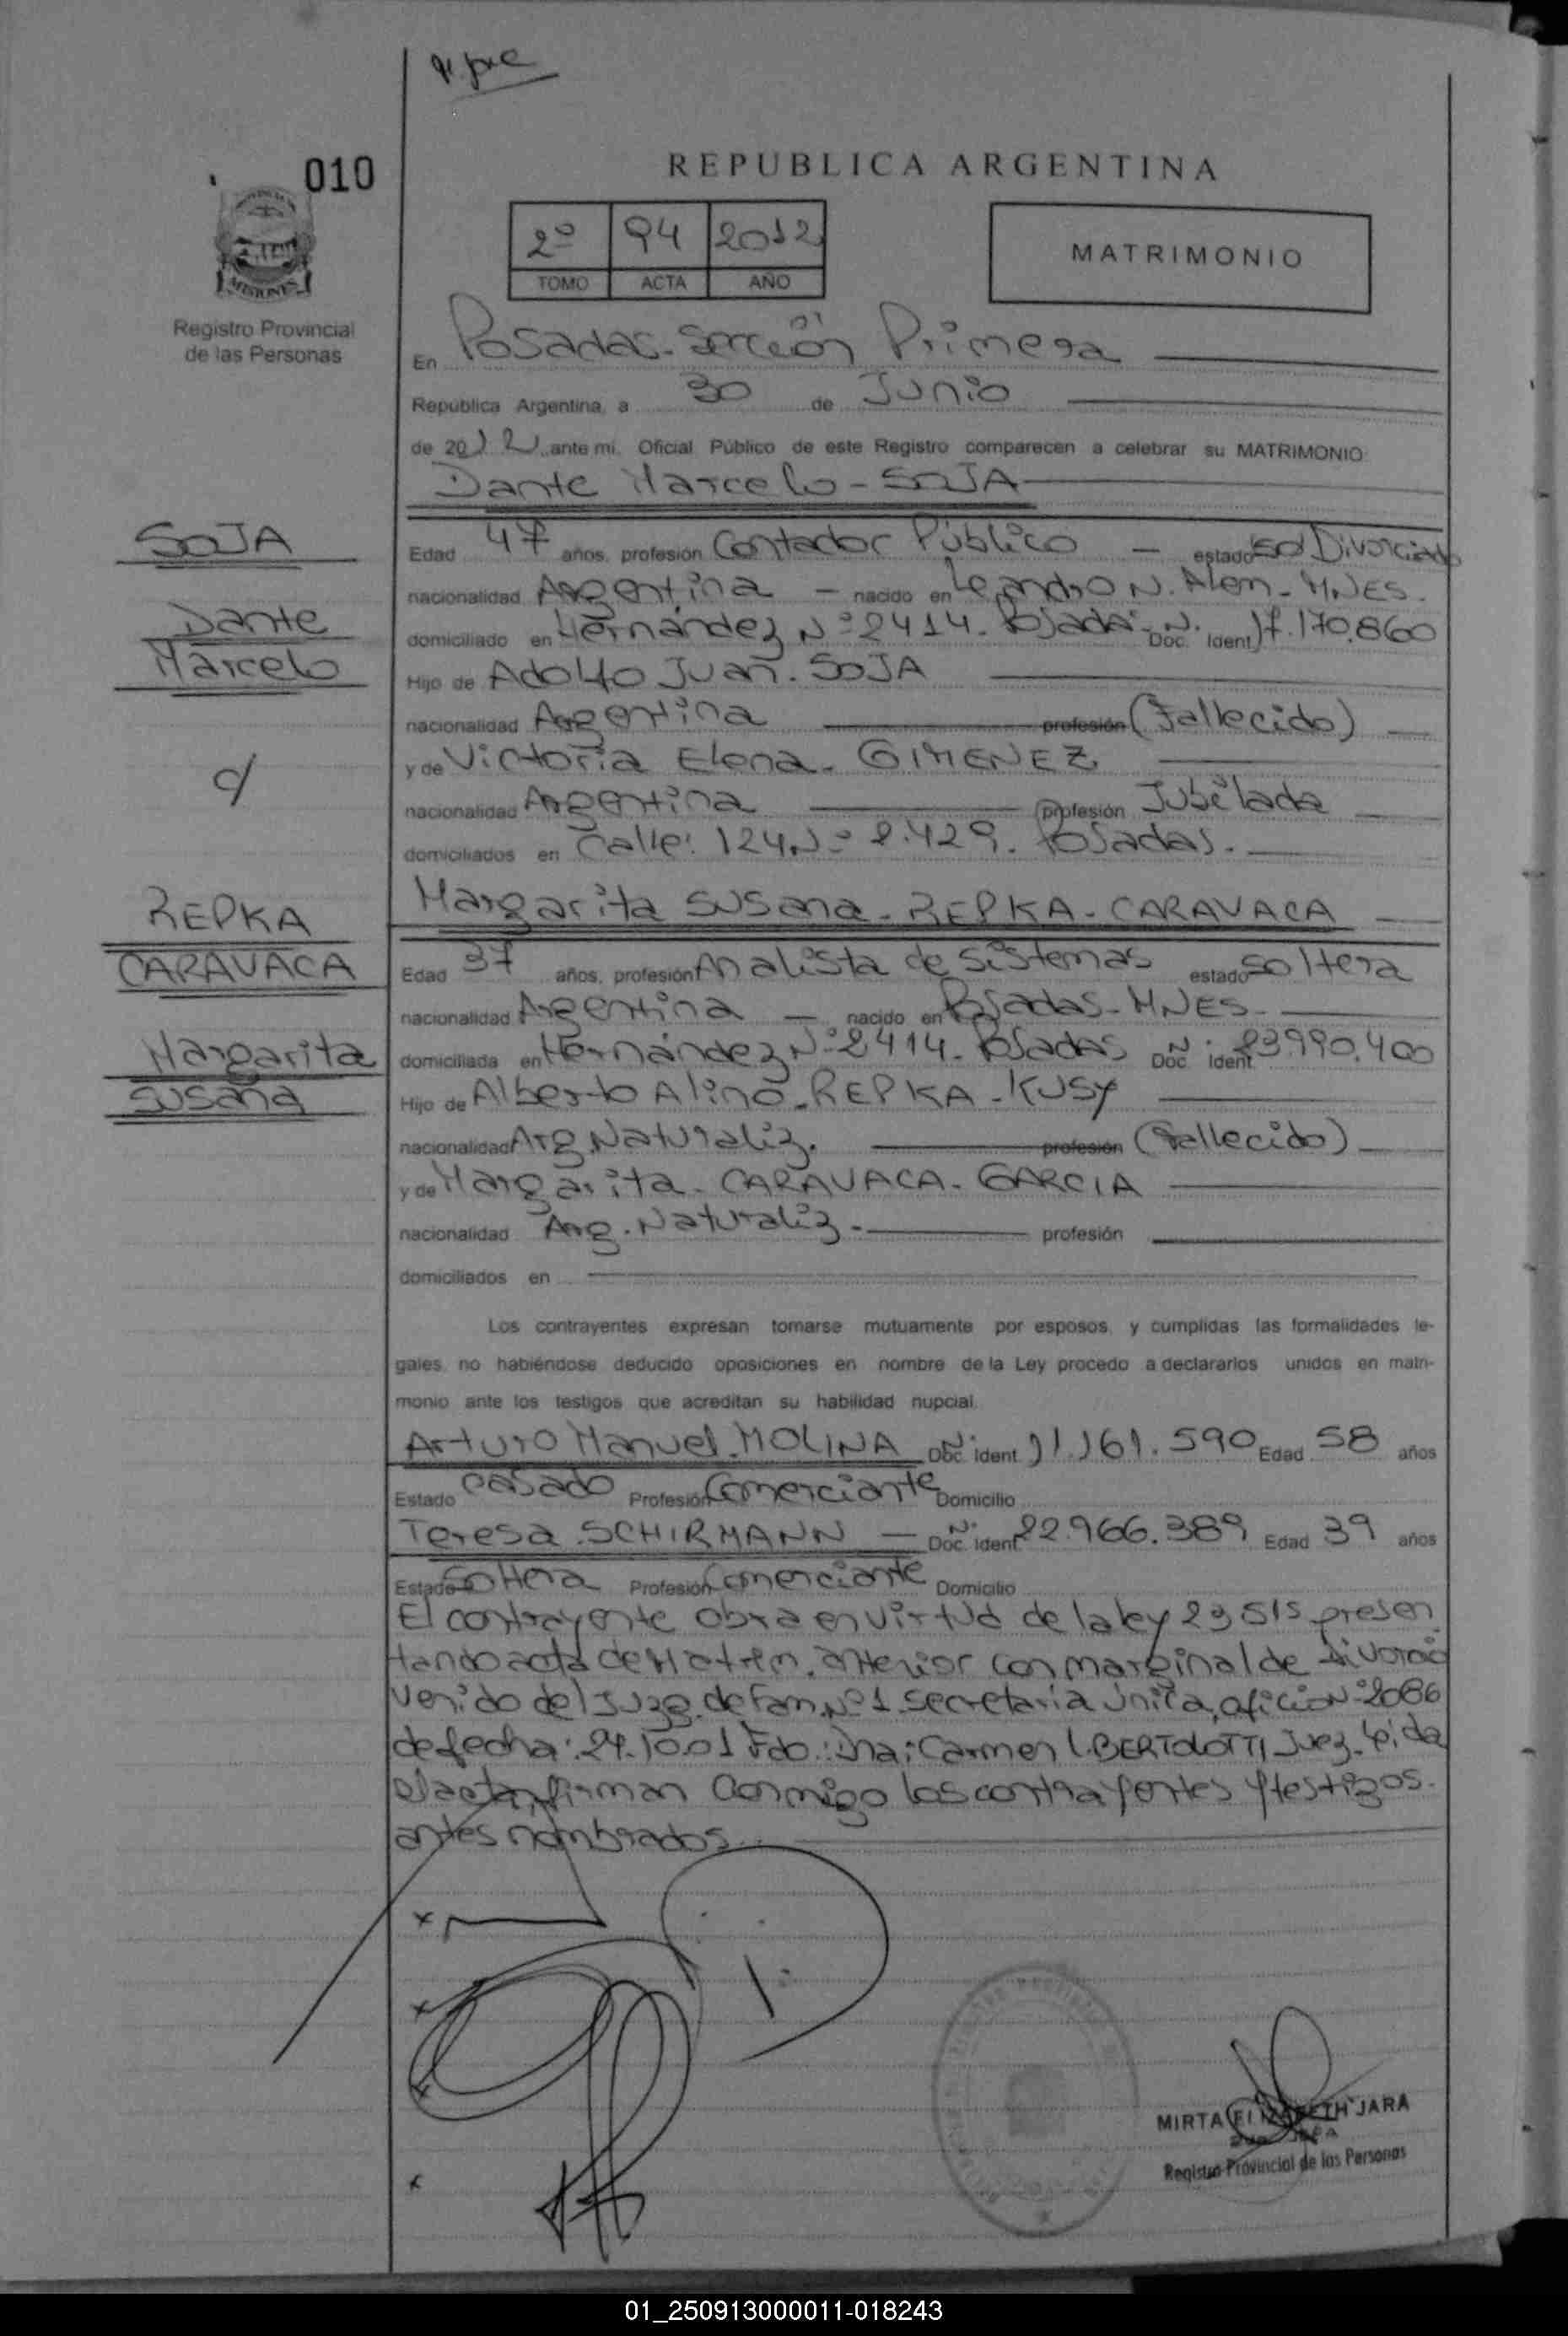 010
REPUBLICA ARGENTINA
2º 94 2012
TOMO ACTA AÑO
MATRIMONIO
MISIONES
Registro Provincial
de las Personas
En Posadas - Sección Primera
República Argentina, a 30 de Junio
de 2012 ante mi, Oficial Público de este Registro comparecen a celebrar su MATRIMONIO:
Dante Marcelo - SOJA
SOJA
Dante
Marcelo
c/
Edad 47 años, profesión Contador Público - estado Divorciado
nacionalidad Argentina - nacido en Leandro N. Alem - MNES.
domiciliado en Hernández Nº 2414. Posadas Doc. Nº Ident 17.170.860
Hijo de Adolfo Juan. SOJA
nacionalidad Argentina profesión (Fallecido)
y de Victoria Elena - GIMENEZ
nacionalidad Argentina profesión Jubilada
domiciliados en Calle: 124 Nº 2.429. Posadas.
Margarita Susana - REPKA - CARAVACA
REPKA
CARAVACA
Margarita
Susana
Edad 37 años, profesión Analista de Sistemas estado Soltera
nacionalidad Argentina - nacido en Posadas - MNES -
domiciliada en Hernández Nº 2414 - Posadas Doc. Nº Ident. 23.990.400
Hijo de Alberto Alino - REPKA - KUSY
nacionalidad Arg. Naturaliz. profesión (Fallecido)
y de Margarita - CARAVACA - GARCIA
nacionalidad Arg. Naturaliz - profesión
domiciliados en
Los contrayentes expresan tomarse mutuamente por esposos, y cumplidas las formalidades le-
gales, no habiéndose deducido oposiciones en nombre de la Ley procedo a declararlos unidos en matri-
monio ante los testigos que acreditan su habilidad nupcial.
Arturo Manuel. MOLINA Doc. Nº ident. 11.161.590 Edad 58 años
Estado Casado Profesión Comerciante Domicilio
Teresa SCHIRMANN - Doc. Nº ident 22.966.389 Edad 39 años
Estado Soltera Profesión Comerciante Domicilio
El contrayente obra en virtud de la ley 23515 presen
tando acta de Matrim. anterior con marginal de Divorcio
venido del Juzg. de Fam. Nº 1 Secretaria Unica, oficio Nº 2086
de fecha: 24.10.01 Fdo.: Dra: Carmen L. BERTOLOTTI Juez. Leida
el acta, firman conmigo los contrayentes y testigos
antes nombrados.
MIRTA ELIZABETH JARA
Registro Provincial de las Personas
01_250913000011-018243